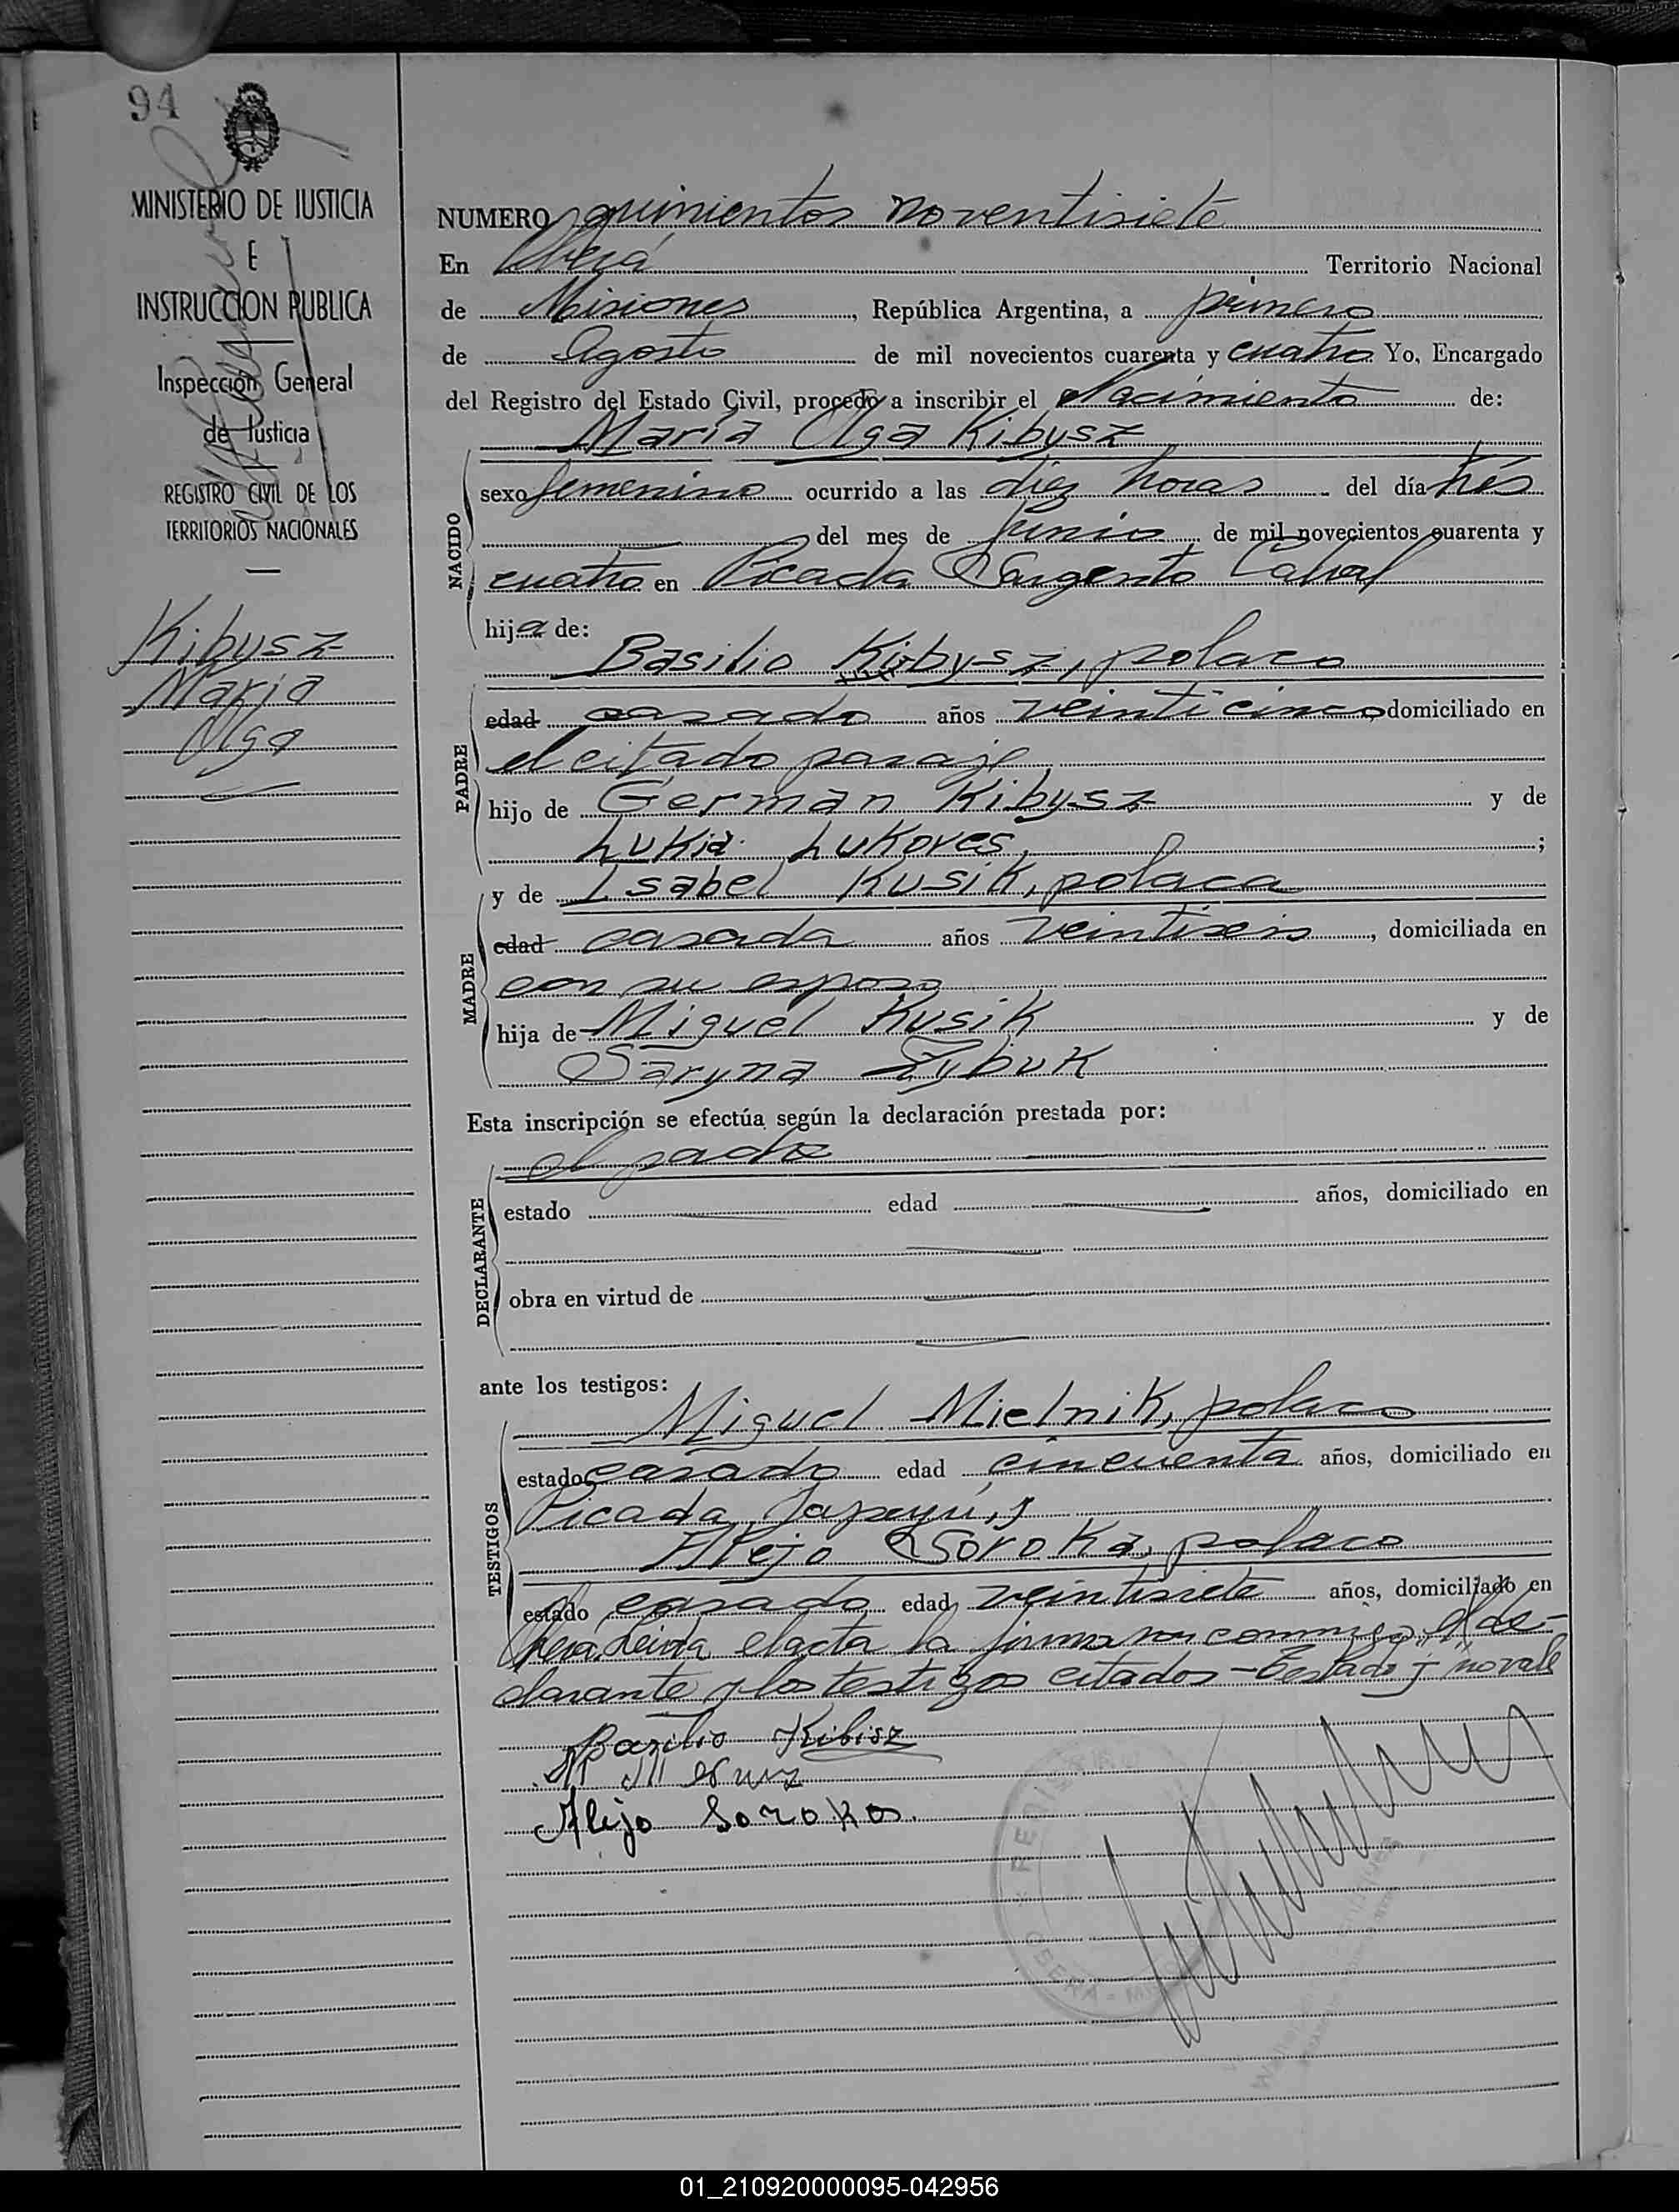 94
MINISTERIO DE JUSTICIA
E
INSTRUCCION PUBLICA
Inspección General
de Justicia
REGISTRO CIVIL DE LOS
TERRITORIOS NACIONALES
Kibysz
Maria
Olga
NUMERO quinientos noventisiete
En Oberá Territorio Nacional
de Misiones, República Argentina, a primero
de Agosto de mil novecientos cuarenta y cuatro Yo, Encargado
del Registro del Estado Civil, procedo a inscribir el Nacimiento de:
Maria Olga Kibysz
NACIDO
sexo femenino ocurrido a las diez horas del día tres
del mes de Junio de mil novecientos cuarenta y
cuatro en Picada Sargento Cabral
hija de:
Basilio Kibysz, polaco
PADRE
edad casado años veinticinco domiciliado en
el citado paraje
hijo de German Kibysz y de
Lukia Lukoves;
y de Isabel Kusik, polaca
MADRE
edad casada años veintiseis, domiciliada en
con su esposo
hija de Miguel Kusik y de
Saryna Zybuk
Esta inscripción se efectúa según la declaración prestada por:
el padre
DECLARANTE
estado edad años, domiciliado en
obra en virtud de
ante los testigos:
Miguel Mielnik, polaco
TESTIGOS
estado casado edad cincuenta años, domiciliado en
Picada Yapeyú, y
Alejo Soroka, polaco
estado casado edad veintisiete años, domiciliado en
Oberá. Leida el acta la firman conmigo, el de-
clarante y los testigos citados - Testado j no vale
Bazilio Kibisz
Alejo Soroka.
REGISTRO
OBERA - MISIONES
01_210920000095-042956